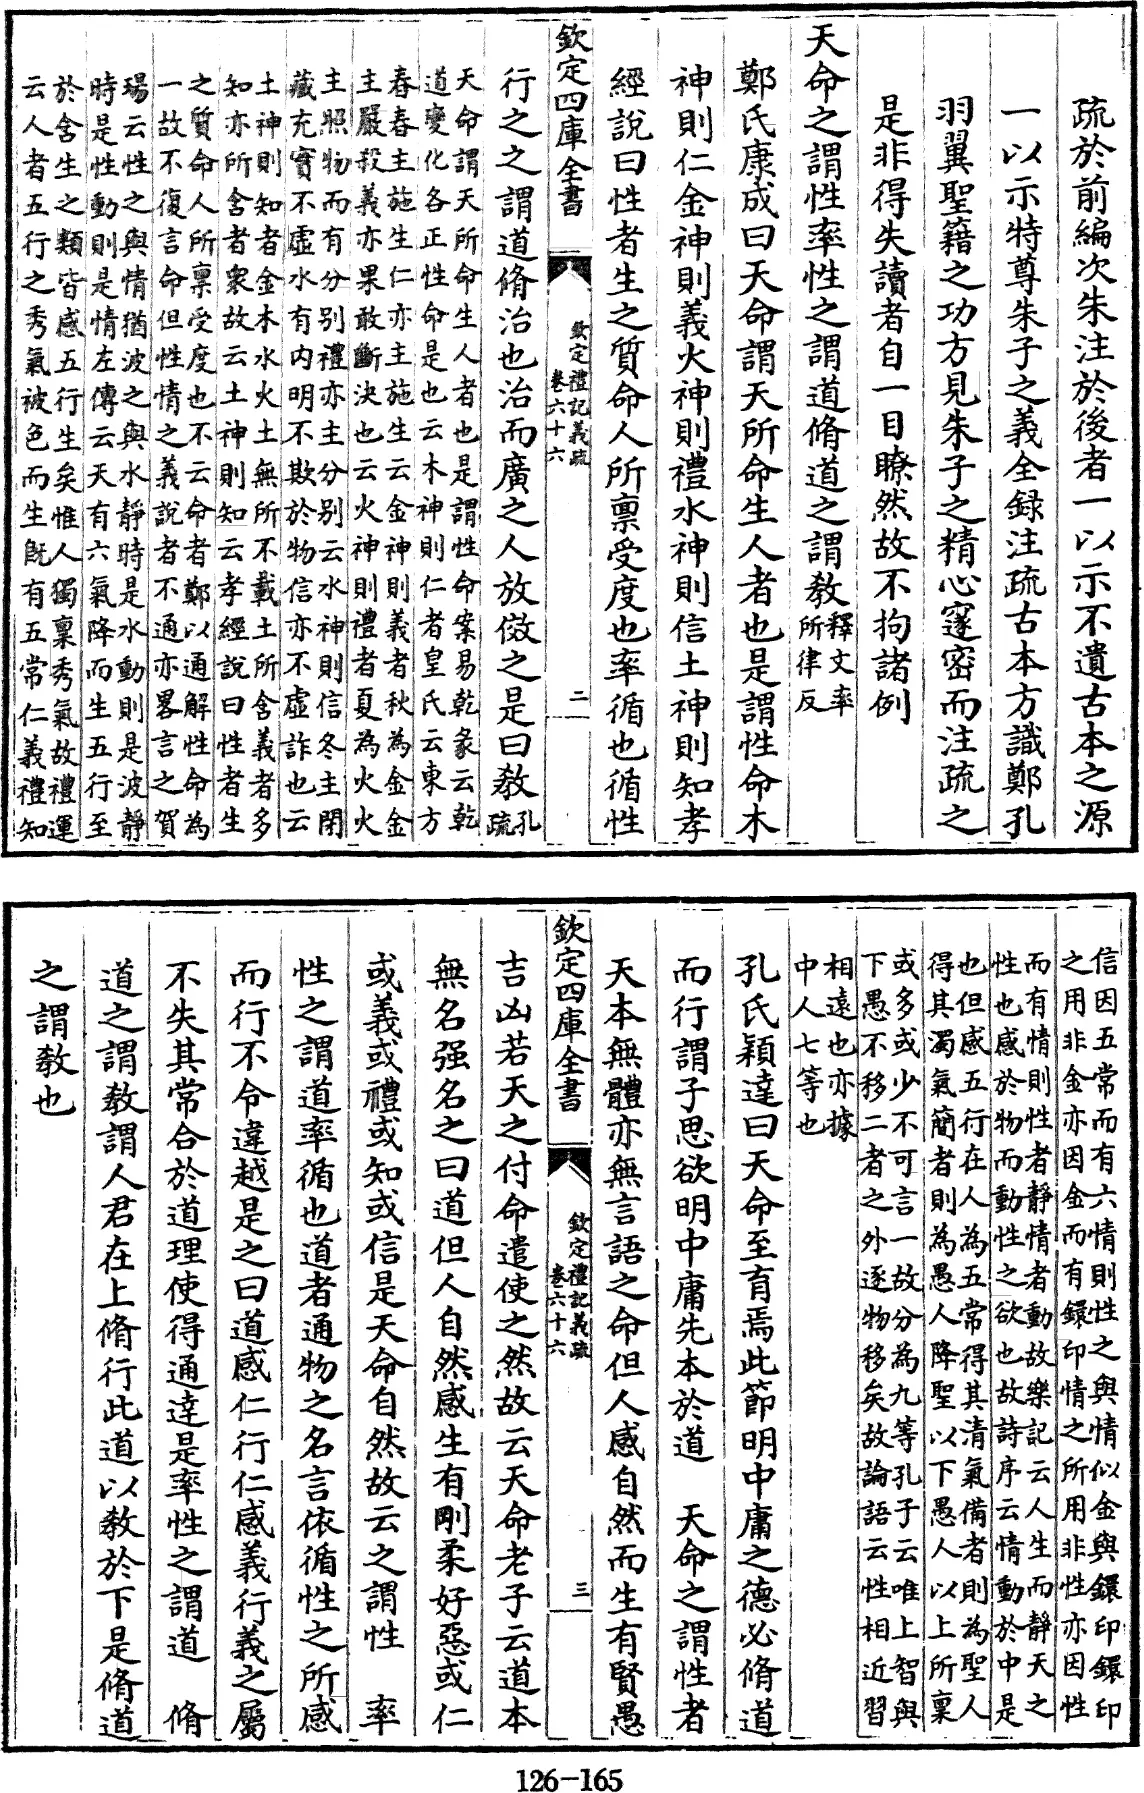 疏於前編次朱注於後者一以示不遺古本之源
一以示特尊朱子之義全録注疏古本方識鄭孔
羽翼聖籍之功方見朱子之精心邃密而注疏之
是非得失讀者自一目瞭然故不拘諸例
天命之謂性率性之謂道脩道之謂教釋文率所律反
鄭氏康成曰天命謂天所命生人者也是謂性命木
神則仁金神則義火神則禮水神則信土神則知孝
經說曰性者生之質命人所禀受度也率循也循性
欽定四庫全書
欽定禮記義疏
卷六十六
二
行之之謂道脩治也治而廣之人放傚之是曰教孔疏
天命謂天所命生人者也是謂性命案易乾彖云乾
道變化各正性命是也云木神則仁者皇氏云東方
春春主施生仁亦主施生云金神則義者秋為金金
主嚴殺義亦果敢斷決也云火神則禮者夏為火火
主照物而有分别禮亦主分别云水神則信冬主閉
藏充實不虛水有内明不欺於物信亦不虛詐也云
土神則知者金木水火土無所不載土所含義者多
知亦所含者衆故云土神則知云孝經說曰性者生
之質命人所禀受度也不云命者鄭以通解性命為
一故不復言命但性情之義說者不通亦畧言之賀
瑒云性之與情猶波之與水靜時是水動則是波靜
時是性動則是情左傳云天有六氣降而生五行至
於含生之類皆感五行生矣惟人獨禀秀氣故禮運
云人者五行之秀氣被色而生既有五常仁義禮知
信因五常而有六情則性之與情似金與鐶印鐶印
之用非金亦因金而有鐶印情之所用非性亦因性
而有情則性者靜情者動故樂記云人生而靜天之
性也感於物而動性之欲也故詩序云情動於中是
也但感五行在人為五常得其清氣備者則為聖人
得其濁氣簡者則為愚人降聖以下愚人以上所禀
或多或少不可言一故分為九等孔子云唯上智與
下愚不移二者之外逐物移矣故論語云性相近習
相遠也亦據
中人七等也
孔氏穎達曰天命至育焉此節明中庸之德必脩道
而行謂子思欲明中庸先本於道 天命之謂性者
天本無體亦無言語之命但人感自然而生有賢愚
欽定四庫全書
欽定禮記義疏
卷六十六
三
吉凶若天之付命遣使之然故云天命老子云道本
無名强名之曰道但人自然感生有剛柔好惡或仁
或義或禮或知或信是天命自然故云之謂性 率
性之謂道率循也道者通物之名言依循性之所感
而行不令違越是之曰道感仁行仁感義行義之屬
不失其常合於道理使得通達是率性之謂道 脩
道之謂教謂人君在上脩行此道以教於下是脩道
之謂教也
126-165